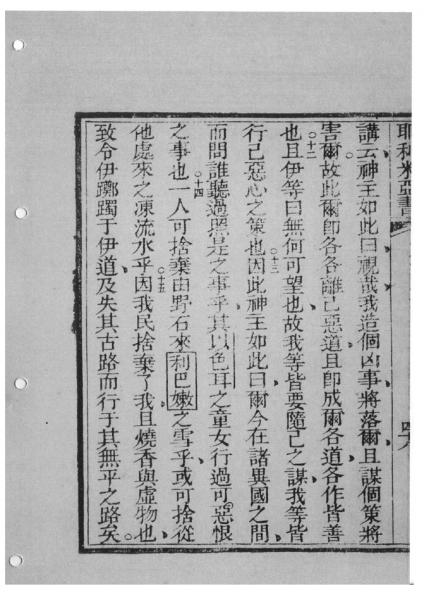 耶利米亞書
講云神主如此曰視哉我造個凶事將落爾且謀個策將
害爾故此爾即各各離己惡道且即成爾各道各作皆善
也○十二且伊等曰無何可望也故我等皆要隨己之謀我等皆
行己惡心之策也○十三因此神主如此曰爾今在諸異國之間
而問誰聽過照是之事乎其以色耳之童女行過可惡恨
之事也○十四一人可捨棄由野石來利巴嫩之雪乎或可捨從
他處來之凍流水乎○十五因我民捨棄了我且燒香與虛物也
致令伊躑躅于伊道及失其古路而行于其無平之路矣